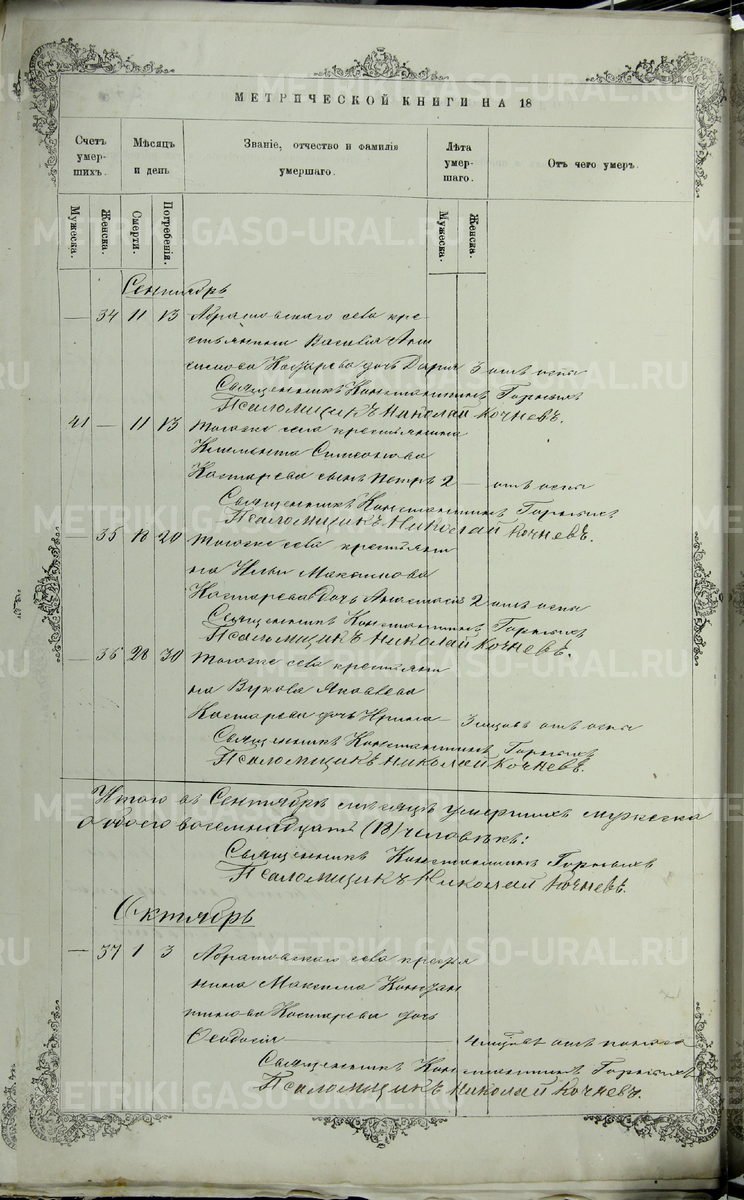 METRIKI.GASO-URAL.RU
МЕТРИЧЕСКОЙ КНИГИ НА 18
Счетъ умершихъ.
Мѣсяцъ и день
Званіе, отчество и фамилія умершаго.
Лѣта умершаго.
Отъ чего умеръ.
Мужеска.
Женска.
Смерти.
Погребенія.
Мужеска.
Женска.
Сентябрь
— 34 11 13 села кре
стьянина Василія
Костарева дочь Дарья 3 отъ оспы
Священникъ Константинъ
Псаломщикъ Николай Кочневъ.
41 — 11 13 Тогоже села крестьянина
Климента Симеонова
Костарева сынъ Петръ 2 — отъ оспы
Священникъ Константинъ
Псаломщикъ Николай Кочневъ.
— 35 18 20 Тогоже села крестьяни
на Ильи Максимова
Костарева дочь Анастасія 2 отъ оспы
Священникъ Константинъ
Псаломщикъ Николай Кочневъ.
— 36 28 30 Тогоже села крестьяни
на Вукола Яковлева
Костарева дочь Ирина — 3 отъ оспы
Священникъ Константинъ
Псаломщикъ Николай Кочневъ.
Итого въ Сентябрѣ мѣсяцѣ умершихъ мужеска
обоего восемнадцать (18) человѣкъ:
Священникъ Константинъ
Псаломщикъ Николай Кочневъ.
Октябрь
— 37 1 3 села крестья
нина Максима Констан
тинова Костарева дочь
Феодосія 4 отъ поноса
Священникъ Константинъ
Псаломщикъ Николай Кочневъ.